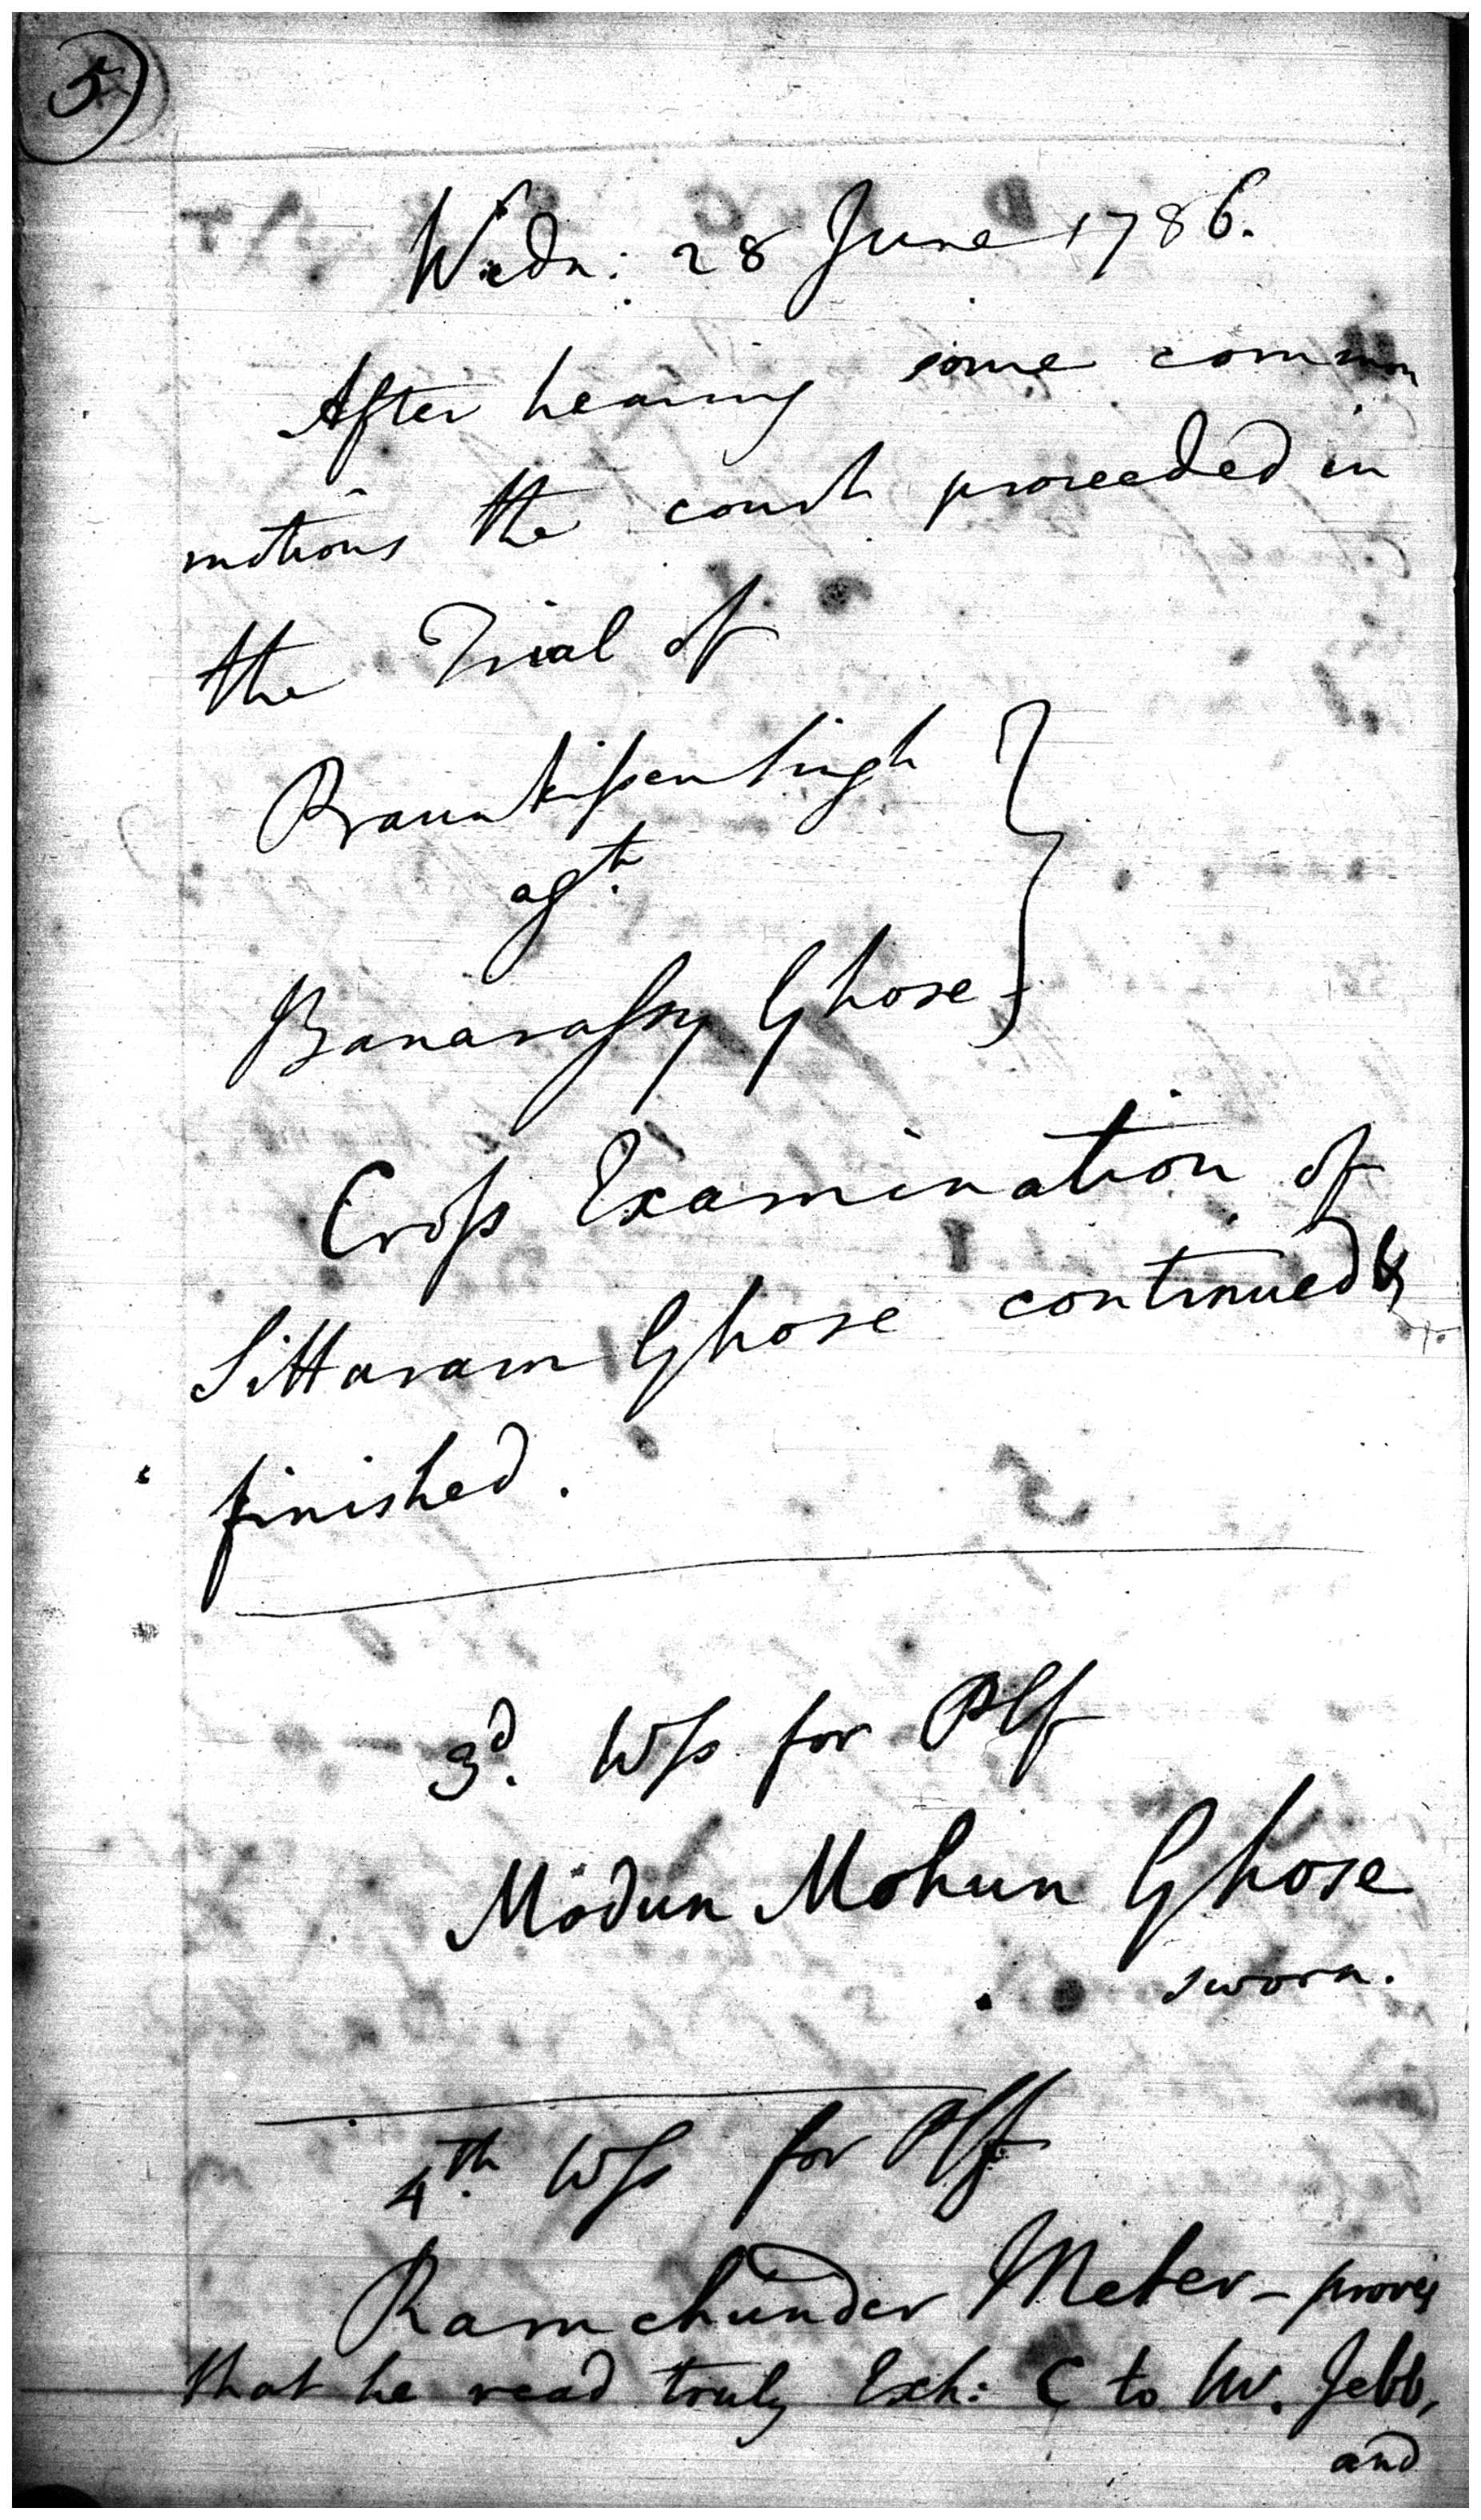 5
Wedn: 28 June 1786.
After hearing some common
motions the court proceeded in
the Trial of
Praunkissen Singh
agt.
Banarassy Ghose
Cross Examination of
Sittaram Ghose continued &
finished.
3d. Wss for Plf
Modun Mohun Ghose
sworn.
4th. Wss for Plf
Ramchunder Meter – proves
that he read truly Exh: C to Mr. Jebb,
and